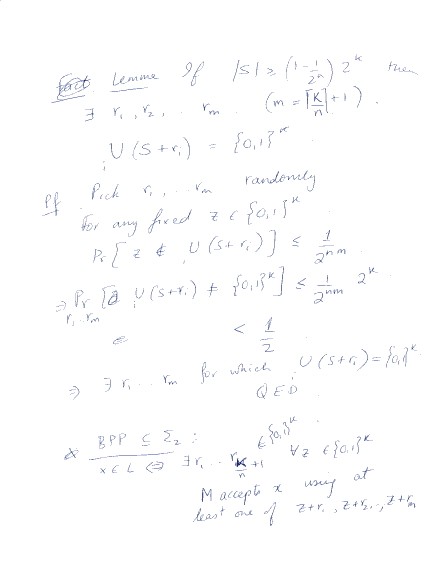 Lemma If |S| ≥ (1 - 1/2^n) 2^k then
∃ r_1, r_2, .. r_m. (m = ⌈k/n⌉ + 1).
∪_i (S + r_i) = {0,1}^k
Pf. Pick r_1, ... r_m randomly
For any fixed z ∈ {0,1}^k
Pr[ z ∉ ∪_i (S + r_i) ] ≤ 1/2^{nm}.
⇒ Pr_{r_1..r_m} [ ∪_i (S + r_i) ≠ {0,1}^k ] ≤ 1/2^{nm} 2^k
< 1/2
⇒ ∃ r_1 .. r_m for which ∪_i (S + r_i) = {0,1}^k
QED.
BPP ⊆ Σ_2 :
x ∈ L ⇔ ∃ r_1 .. r_{k/n + 1} ∈ {0,1}^k ∀ z ∈ {0,1}^k
M accepts x using at
least one of z + r_1, z + r_2, .., z + r_m